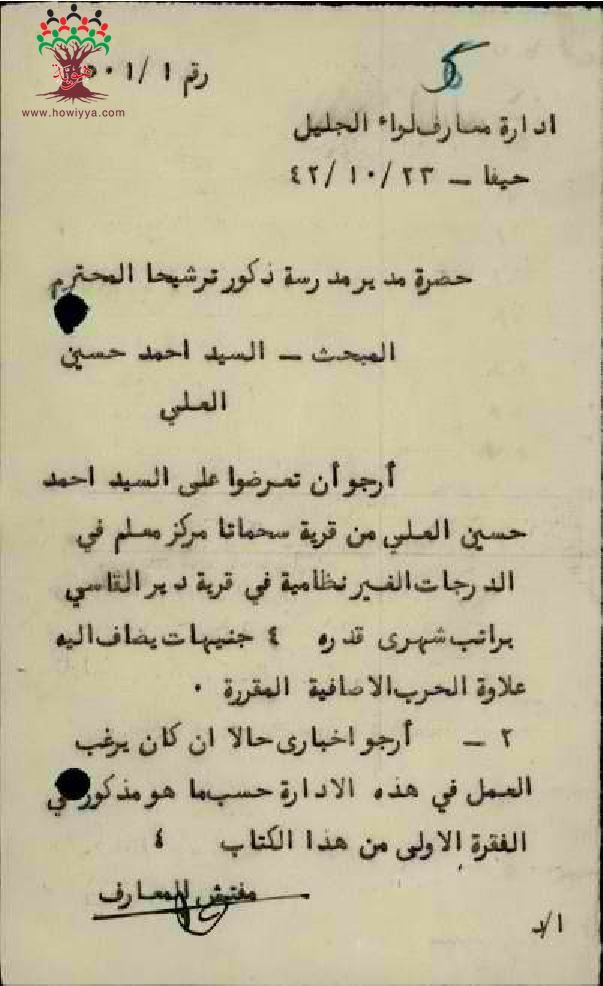 هوية
www.howiyya.com
رقم ١ /٥٠٠١
ادارة معارف لواء الجليل
حيفا – ٤٢/١٠/٢٣
حضرة مدير مدرسة ذكور ترشيحا المحترم
المبحث – السيد احمد حسين
العلي
أرجو أن تعرضوا على السيد احمد
حسين العلي من قرية سحماتا مركز معلم في
الدرجات الغير نظامية في قرية دير القاسي
براتب شهرى قدره ٤ جنيهات يضاف اليه
علاوة الحرب الاضافية المقررة .
٢ – أرجو اخبارى حالا ان كان يرغب
العمل في هذه الادارة حسب ما هو مذكور في
الفقرة الاولى من هذا الكتاب ٤
مفتش المعارف
ا/د